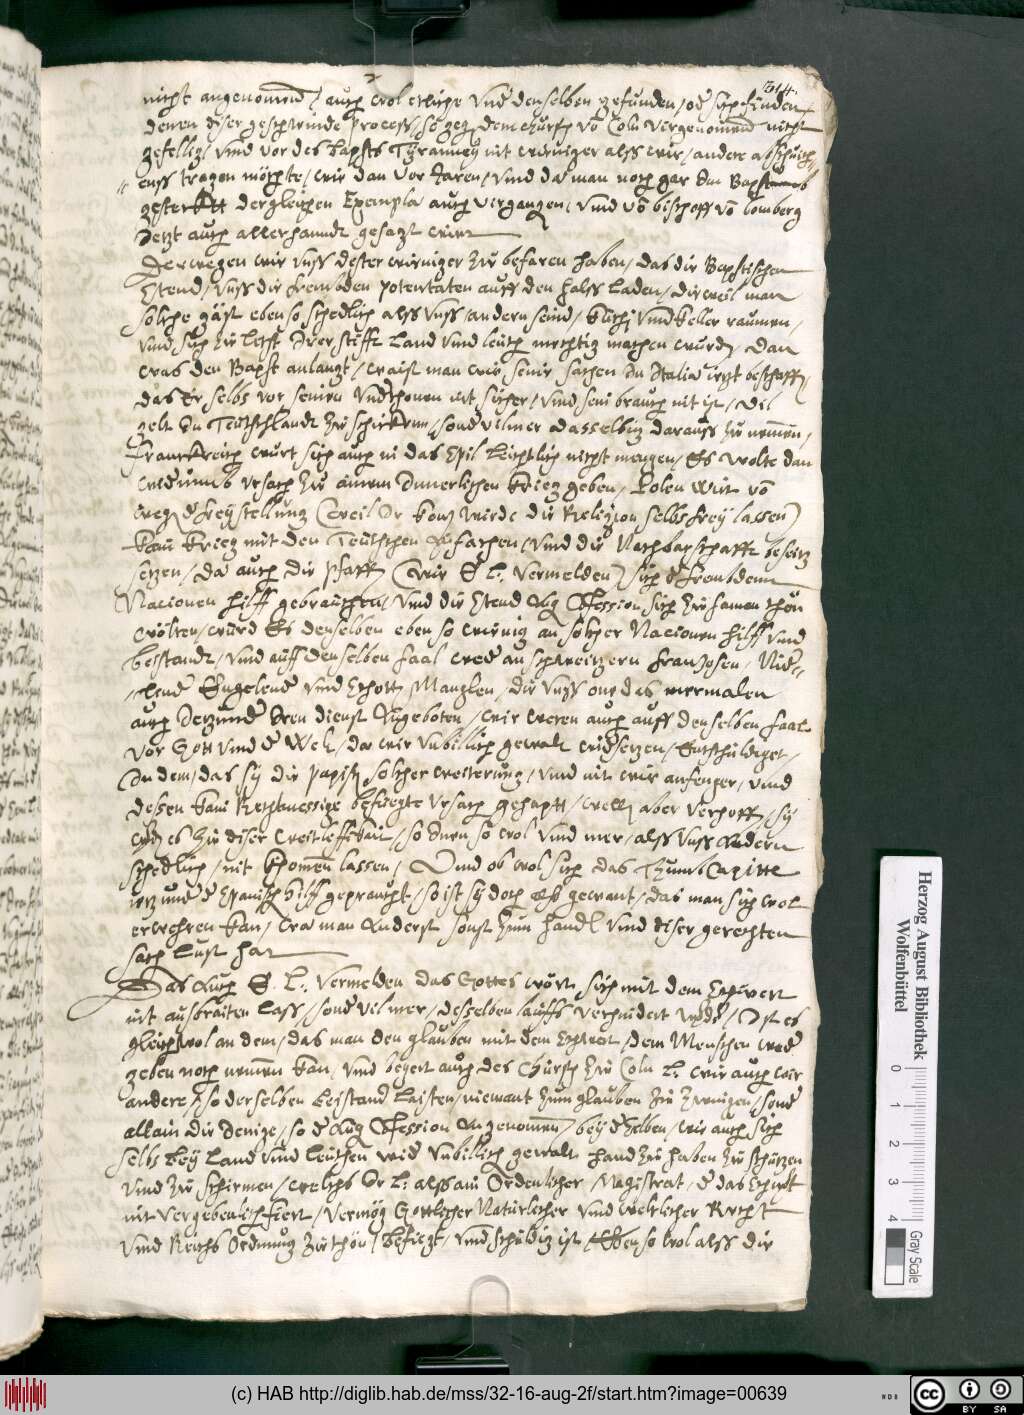 314.
nicht angenommen / auch wol etliche under denselben gefunden / oder sich finden
denen diser geschwinde Process, so gegen dem Churfn von Coln vorgenommen nicht
gefellig und vor des Bapsts Tyranney nit weniger alss wir / andere abschuch=
enss tragen möchte / wir dan vor Jaren / und da man noch gar Im Bapstumb
gesteckt dergleichen Exempla auch vergangen / und von bischoff von bomberg
Jetzt auch allerhandt gesagt wirt
Derwegen wir unss dester weniger zu befaren haben / das die Bapstischen
Stend / unss die frembden potentaten auff den halss laden / dieweil man
solche gäst eben so schedlich alss unss / andern seind / Kuchj und Keller raumen /
und sich zu letst Irer stifft land und leuth mechtig machen wurden dan
was den Bapst anlangt / waist man wie seine sachen In Italia ietzt beschaffen
das Er selbs vor seinen underthonen nit sicher / und sein brauch nit ist / vil
gelt In Teutschlandt zu schicken / sonder vilmer dasselbig darauss zu nemmen /
Franckreich wurt sich auch in das Spil leichtlich nicht mengen / Es wolte dan
widerumb ursach zu ainem Innerlichen Krieg geben / Polen wirt von
wegen der freystellung (weil der Konig wirde die Religion selbs frey lassen)
kain krieg mit den Teutschen Anfachen / und die Nachbarschafft beseitz
setzen / da auch die pfaffen (wie E. L. vermelden) sich der frembden
Nacionen hilff gebrauchen / und die Stend Aug Confession sich zusamen thon
wölten / wurd Es denselben eben so wenig an solcher Nacionen hilff und
beistandt / und auff denselben faal weder an schweitzern franzosen / Nider=
lender Engelender und Schotten Manglen / die unss one das mermalen
auch Jetzunder Iren dienst Angeboten / wir weren auch auff denselben faal
vor Gott und der Welt / da wir unbillich gewalt widersetzen / Entschuldiget /
In dem / das sy die papisten solcher weiterung / und nit wir anfenger / und
dessen kain Rechtmessige befuegte ursach gehapt / wellen aber verhoffen / sy
werden es zu diser weitleffikait / so Inen so wol und mer / alss unss Andern
schedlich / nit khomen lassen / Und ob wol sich das Thumb Capittel
ietzunder der Spanischen hilff gepraucht / so ist sy doch gewant / das man sich wol
erwehren kan / wo man Anderst sonst zum handel und diser gerechten
sach lust hat
Das Auch E. L. vermelden das Gottes wort sich mit dem Schwert
nit ausbraiten lass / sonder vil mer / desselben lauffs verhindert werde / Ist es
gleichwol an dem / das man den glauben mit dem Schwert / dem Menschen weder
geben noch nemmen kan / und begert auch des Churfn zu Coln L. wir auch wir
andere / so derselben beistand laisten / niemant zum glauben zu zwingen / sonder
allain die Jenige / so der Aug Confession Angenommen / bey derselben / wie auch sich
selbs bey land und leuthen wider unbillich gewalt handzuhaben zu schützen
und zu schirmen / welchs Ir L. alss ain Ordenlicher Magistrat / der das Schwert
nit vergebenlich fiert / vermög Gottlicher Natürlicher und weltlicher Recht
und Reichs Ordnung zu thon / befuegt / und schuldig ist / Eben so wol alss die
Herzog August Bibliothek
Wolfenbüttel
0 1 2 3 4
Gray Scale
(c) HAB http://diglib.hab.de/mss/32-16-aug-2f/start.htm?image=00639
WDB
CC BY SA